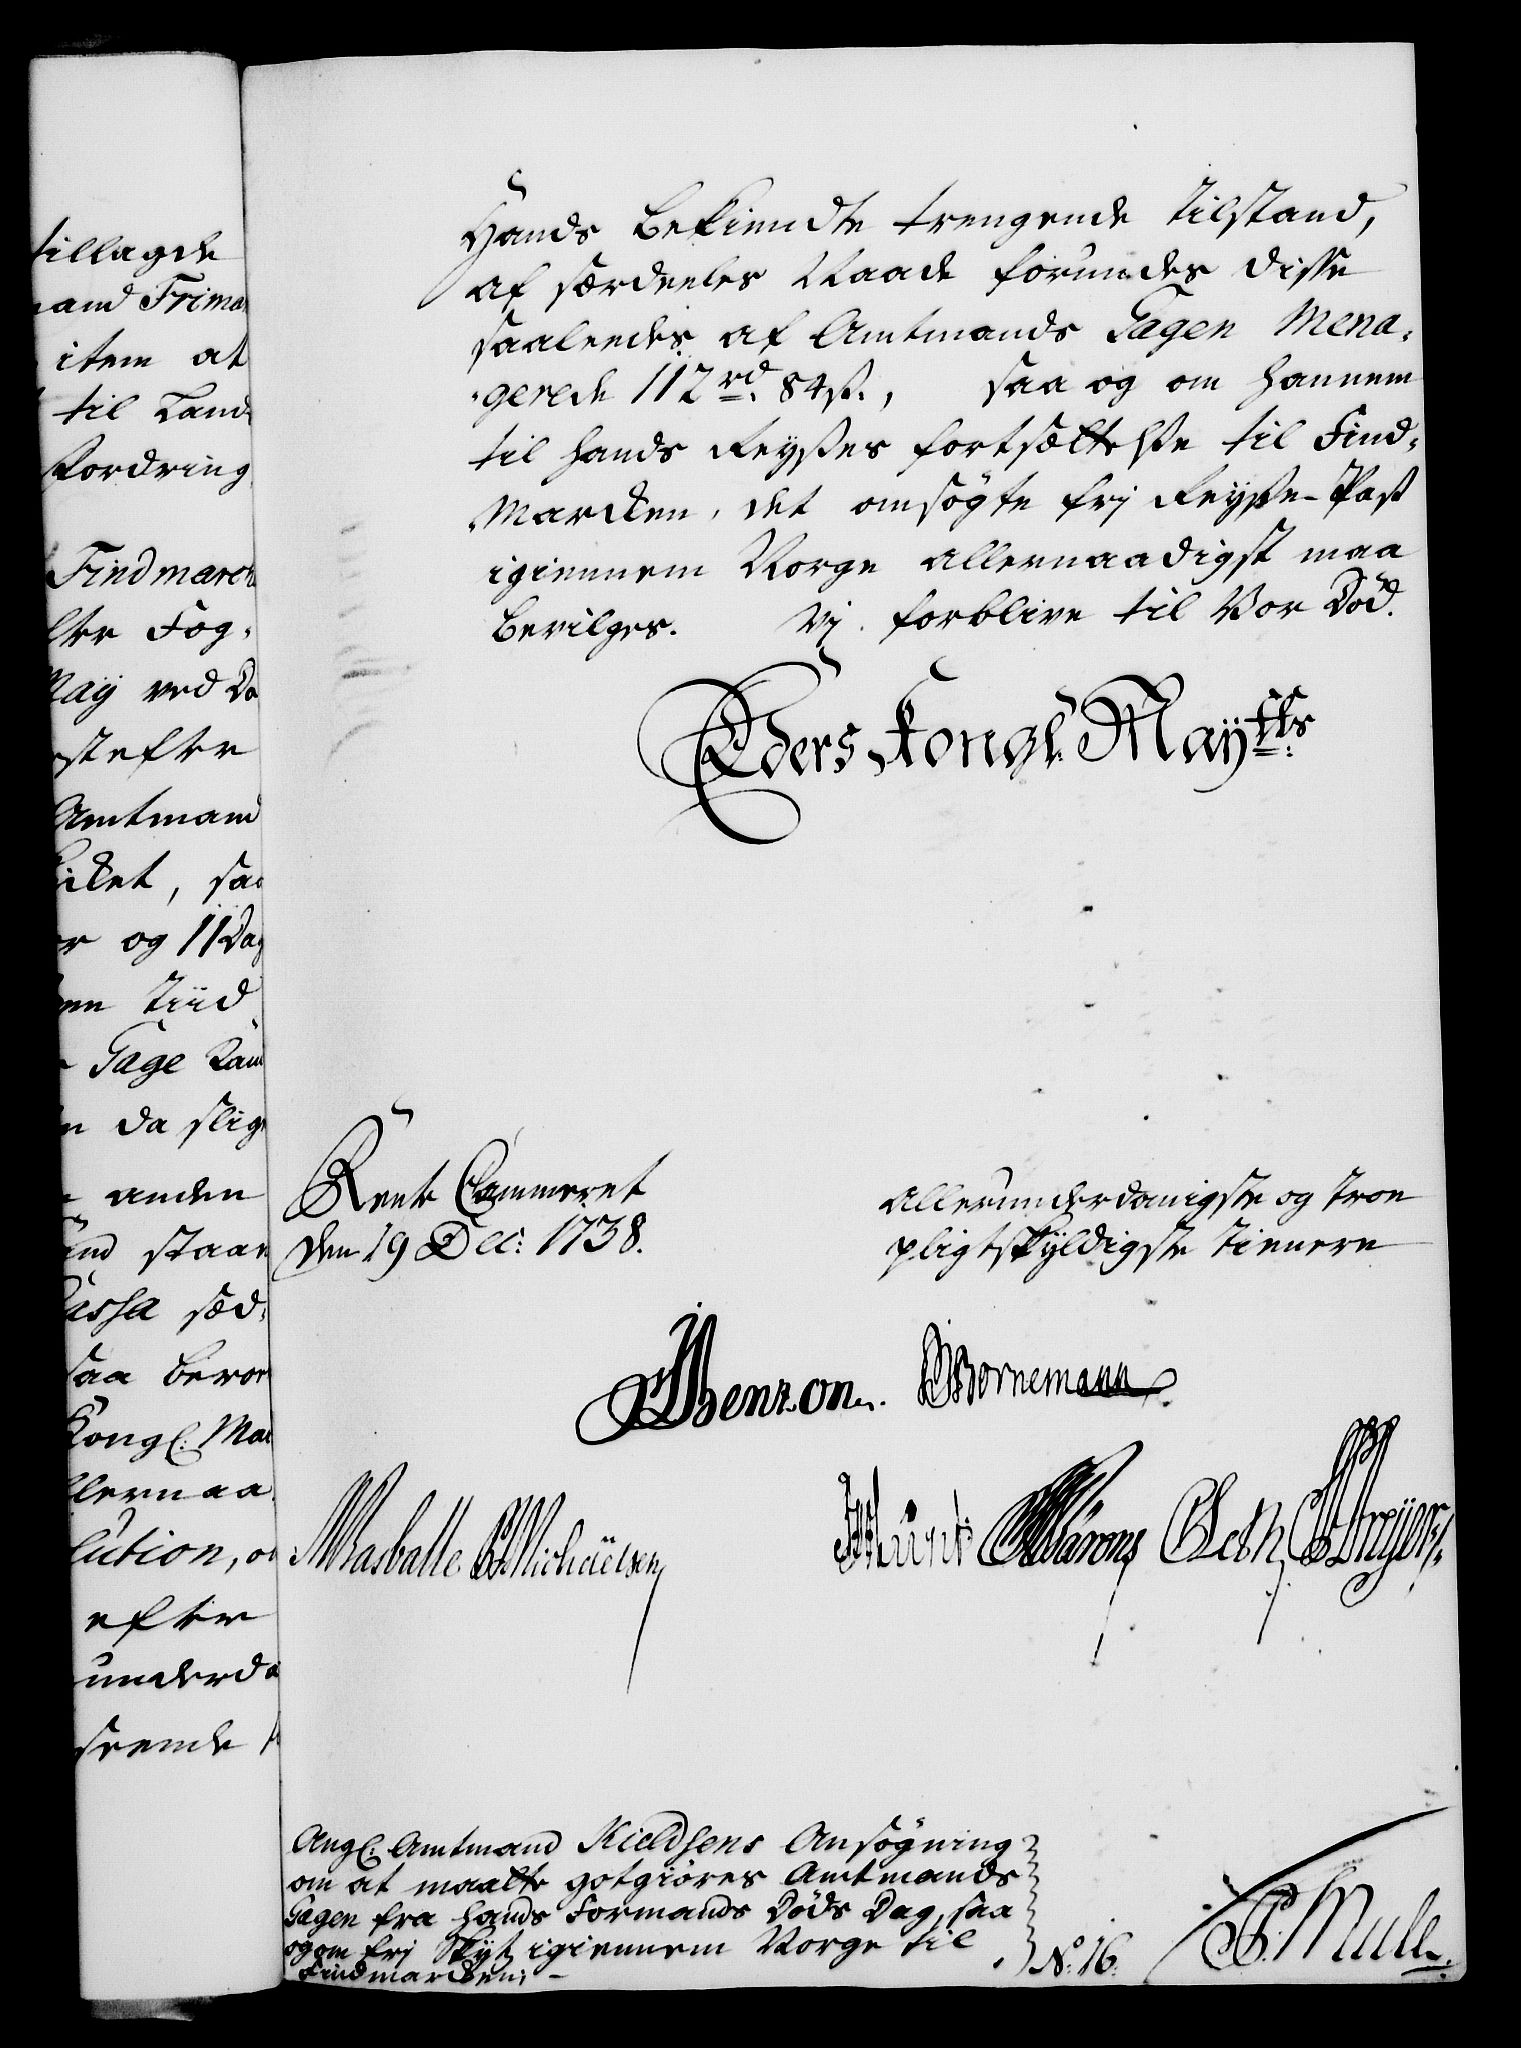 tillagde
and Frima
item at
til Land
fordring
Findmarck
Fog-
May ved Do
efter
Amtmand
saa
og 11 Dag
Tiid
Gage
da slig
anden
staar
Cassa
saa
Kongl: May
llernaa
lution,
efter
underda
Hands bekiendte trengende Tilstand,
af særdeeles Naade forundes disse
saaleedes af Amtmands Gagen mena-
gerede 112 rd. 84 ß., saa og om hannem
til hands Reyßes fortsættelße til Find-
marcken, det omsøgte frj Reyße-Pass
igiennem Norge allernaadigst maa
bevilges. Vj forblive til Vor Død.
Eders Kongl. Maytts
Rente Cammeret
den 19 Dec: 1738.
Allerunderdanigste og Troe
pligtskyldigste Tienere
Benzon. Bornemann
Rasballe Michäelsen
Ang: Amtmand Kieldsens Ansøgning
om at maatte gotgiøres Amtmands
Gagen fra hands Formands Døds Dag, saa
og om frj Skytz igiennem Norge til
Findmarcken. –
No: 16.
Mule